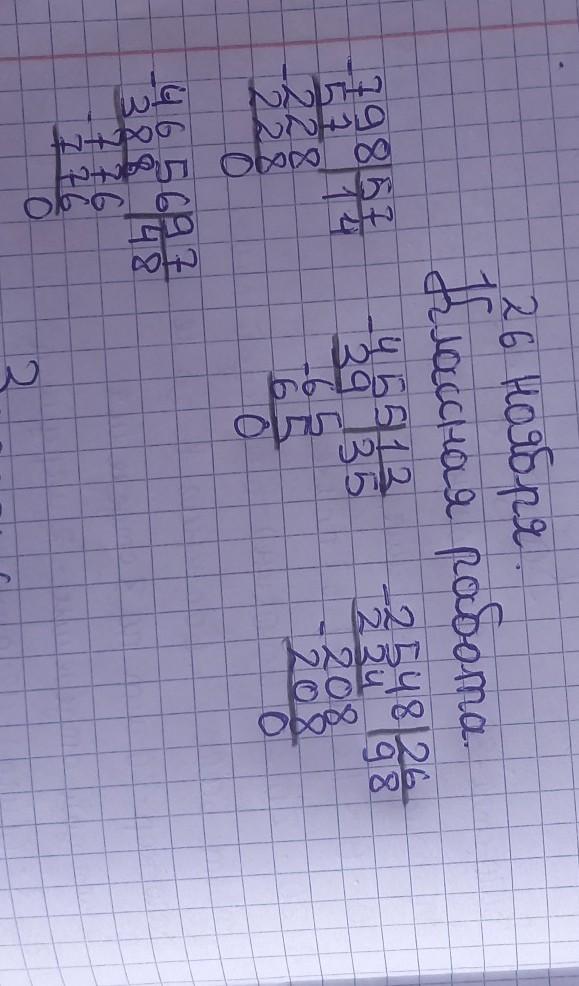 26 ноября.
Классная работа.
-798|57
57 |14
-228
228
0
-455|13
39 |35
-65
65
0
-2548|26
234 |98
-208
208
0
-4656|97
388 |48
-776
776
0